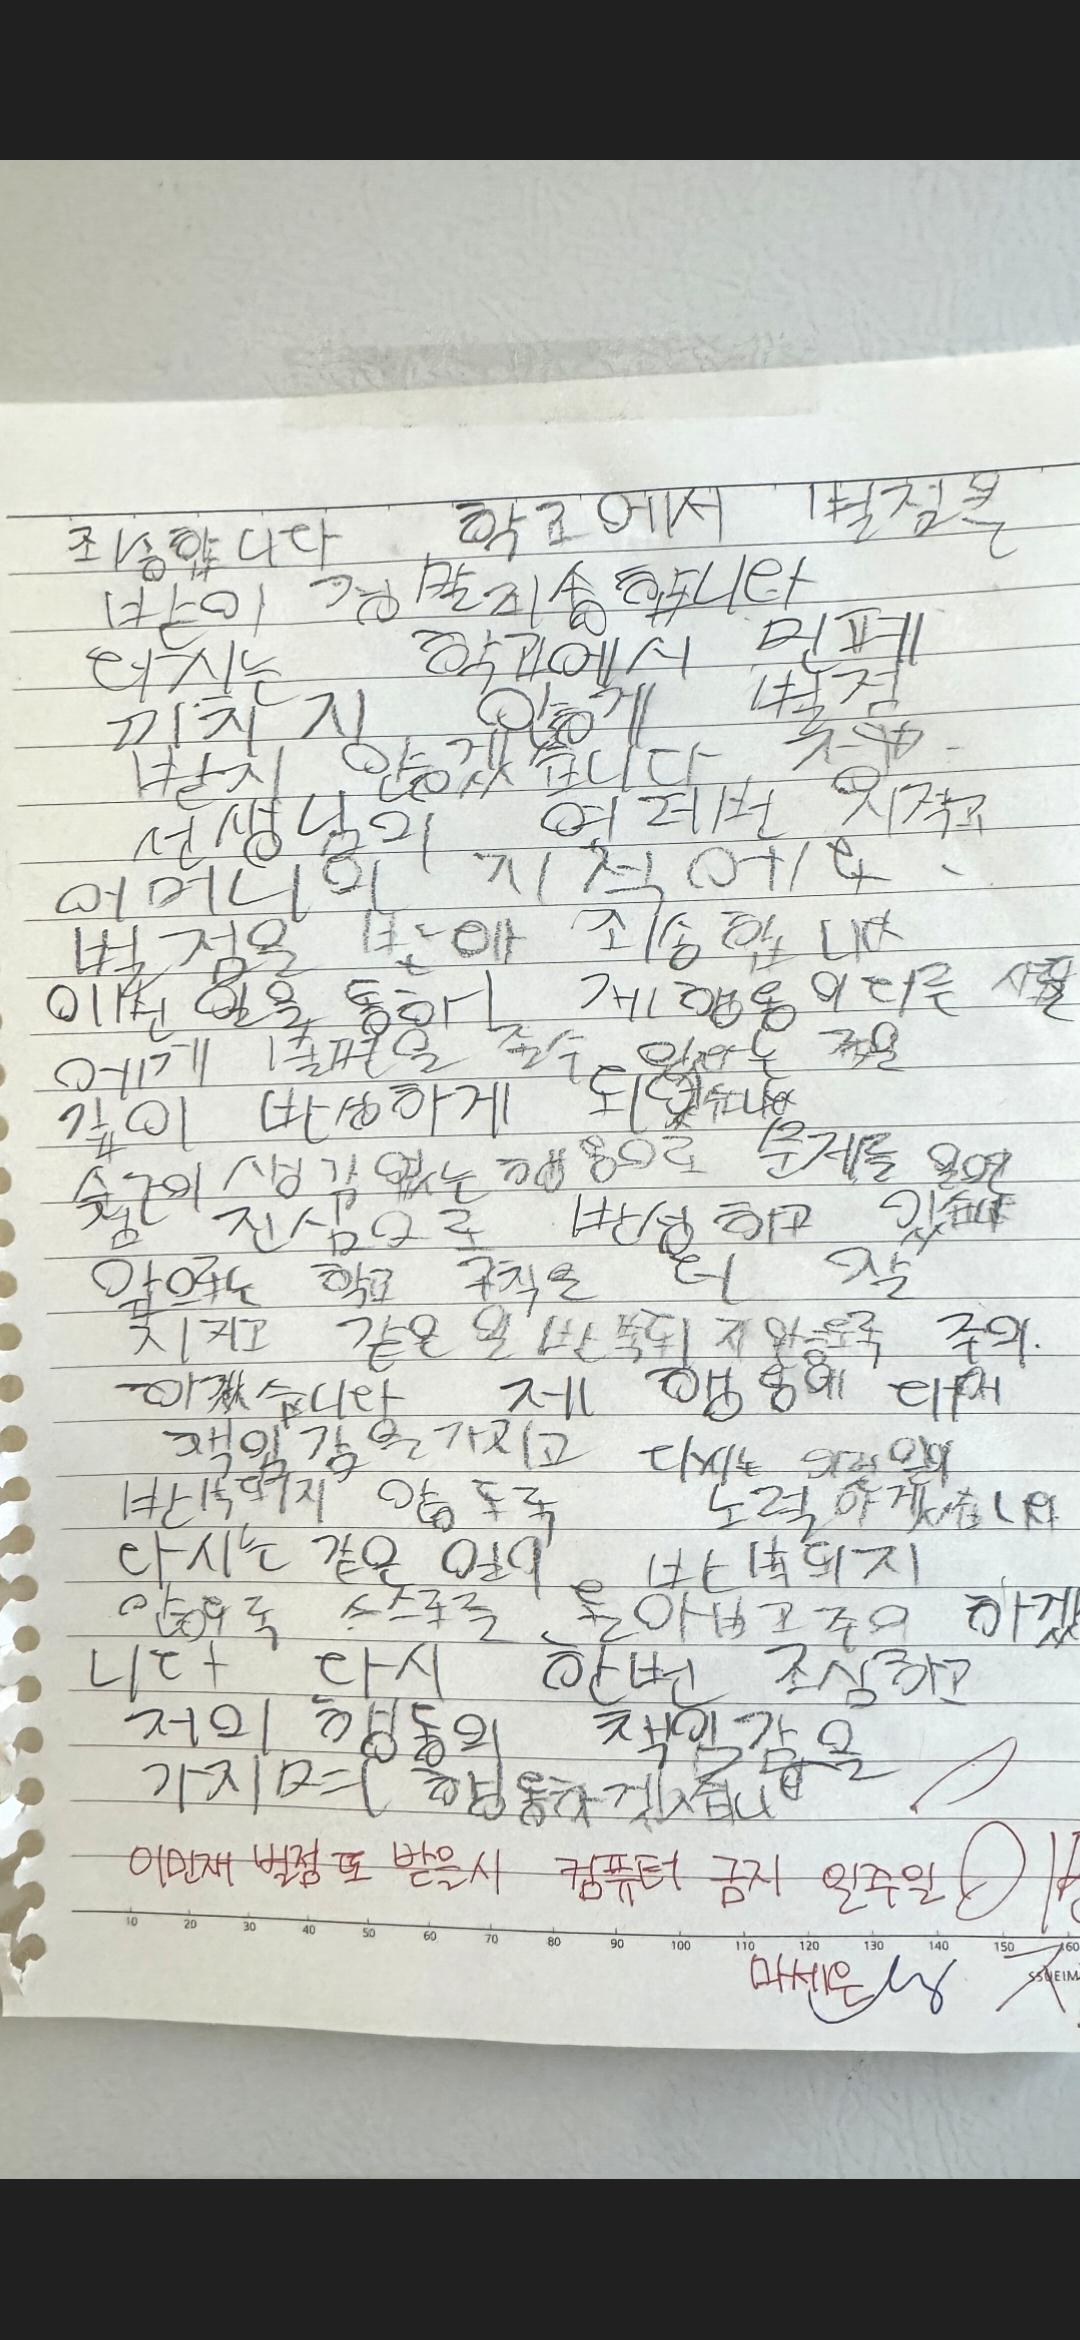 죄송합니다 학교에서 벌점을
받아 정말죄송합니다
다시는 학교에서 민폐
끼치지 않게 벌점
받지 않겠습니다
선생님의 여러번 지적과
어머니의 지적에도
벌점을 받은애 죄송합니다
이번 일을 통하니 제행동의 다른 사람
에게 불편을 줄수 있다는 것을
깊이 반성하게 되었습니다
순간의 생각 없는 행동으로 문제를 일으킨
점 진심으로 반성하고 있습니다
앞으로는 학교 규칙을 더 잘
지키고 같은 일 반복되지않도록 주의
하겠습니다 제 행동에 대해
책임감을가지고 다시는 일이
반복되지 않도록 노력하겠습니다
다시는 같은 일이 반복되지
않도록 스스로를 돌아보고주의 하겠
니다 다시 한번 조심하고
저의 행동의 책임감을
가지며 행동하겟습니다
이민재 벌점 또 받을시 컴퓨터 금지 일주일
10 20 30 40 50 60 70 80 90 100 110 120 130 140 150 160
마세은